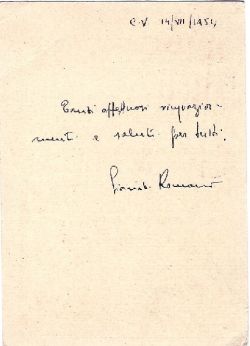 C.V 14/VII/1951,
Tanti affettuosi ringrazia-
menti e saluti per tutti.
Romano